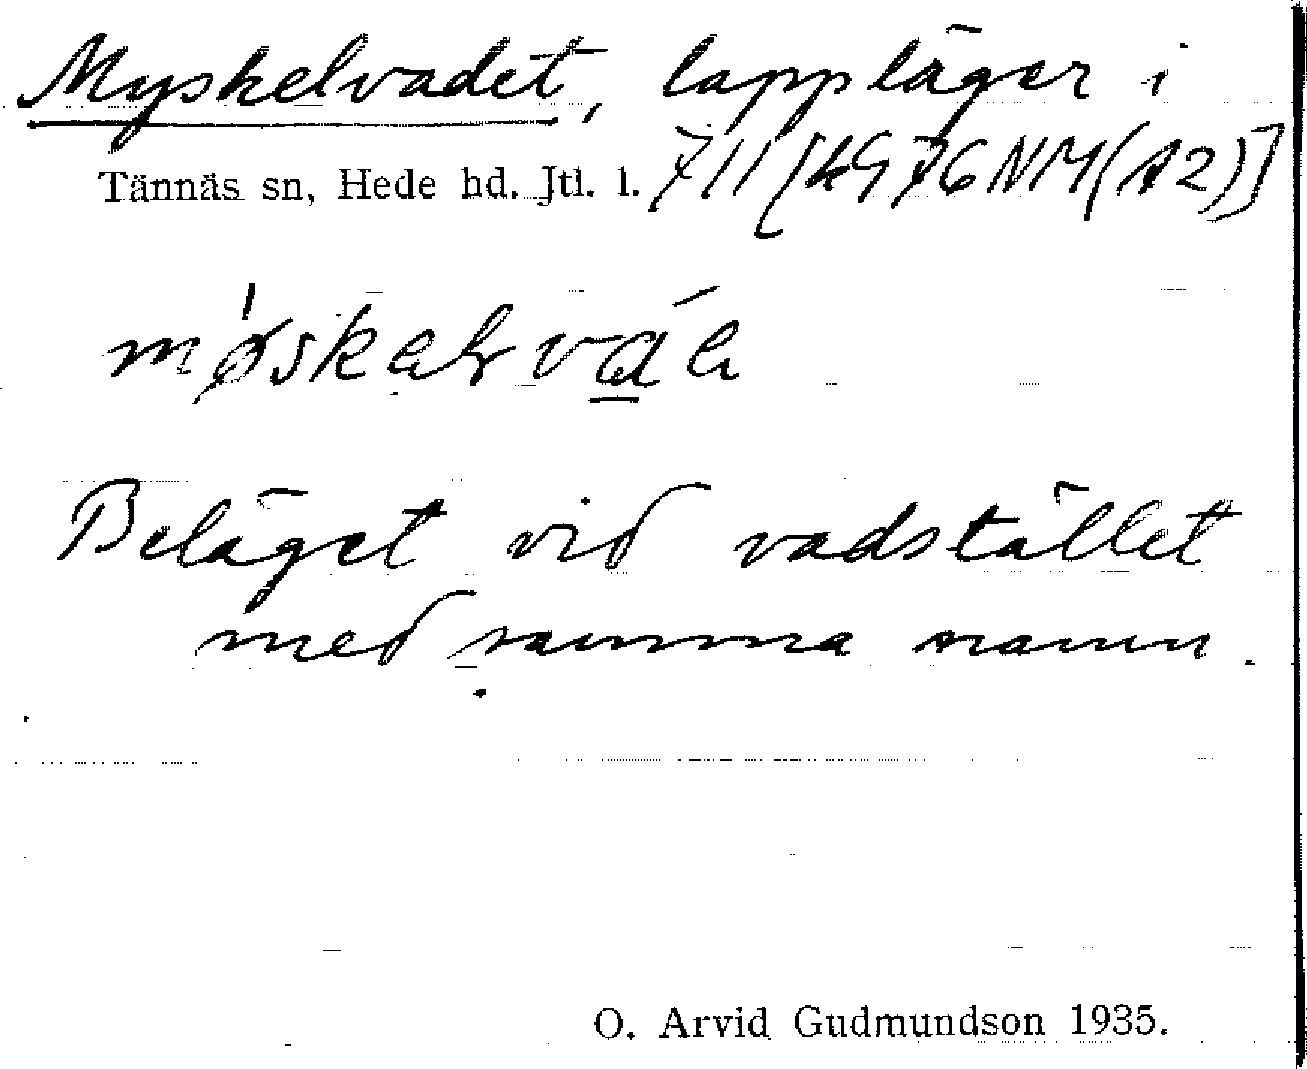 Myskelvadet, lappläger i
Tännäs sn, Hede hd. Jtl. l. 711 [kG76NM(A2)]
Beläget vid vadstället
med samma namn.
O. Arvid Gudmundson 1935.